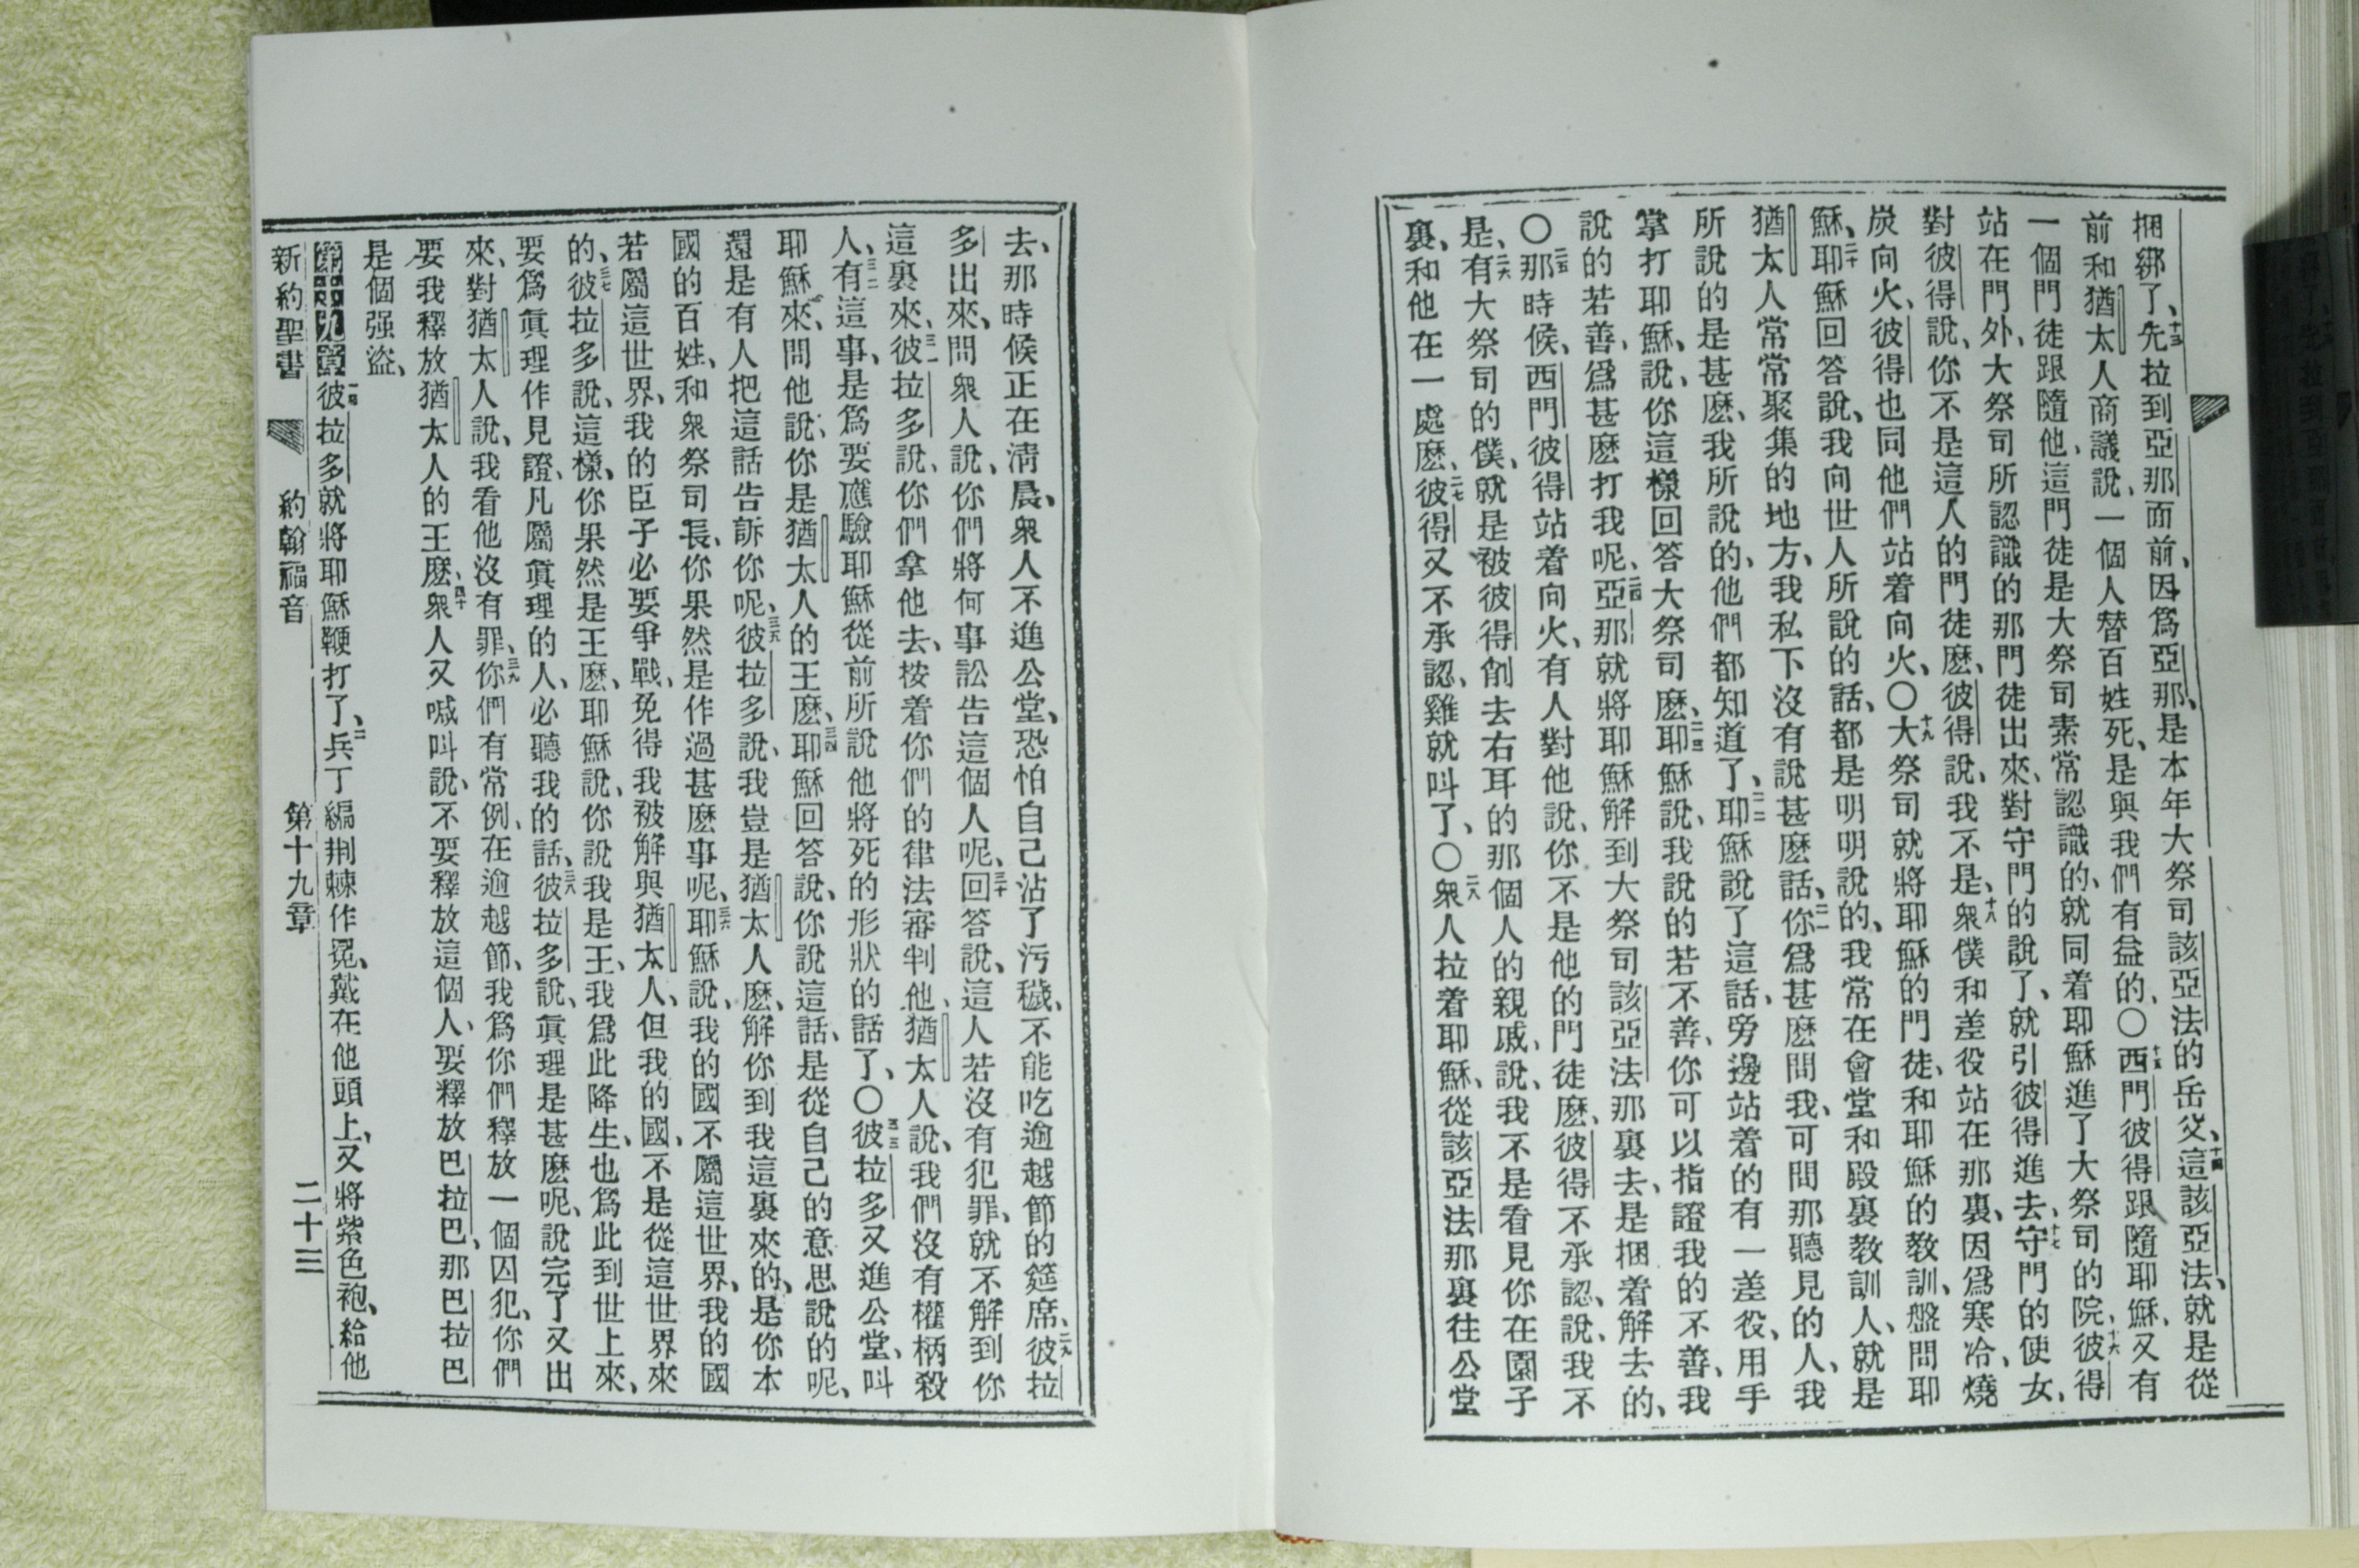 捆綁了、十三先拉到亞那面前、因爲亞那、是本年大祭司該亞法的岳父、十四這該亞法、就是從
前和猶太人商議說、一個人替百姓死、是與我們有益的、〇十五西門彼得跟隨耶穌、又有
一個門徒跟隨他、這門徒是大祭司素常認識的、就同着耶穌進了大祭司的院、十六彼得
站在門外、大祭司所認識的那門徒出來、對守門的說了、就引彼得進去、十七守門的使女、
對彼得說、你不是這人的門徒麽、彼得說、我不是、十八衆僕和差役站在那裏、因爲寒冷、燒
炭向火、彼得也同他們站着向火、〇十九大祭司就將耶穌的門徒、和耶穌的敎訓、盤問耶
穌、二十耶穌回答說、我向世人所說的話、都是明明說的、我常在會堂和殿裏敎訓人、就是
猶太人常常聚集的地方、我私下沒有說甚麽話、二一你爲甚麽問我、可問那聽見的人、我
所說的是甚麽、我所說的、他們都知道了、二二耶穌說了這話、旁邊站着的有一差役、用手
掌打耶穌、說、你這樣回答大祭司麽、二三耶穌說、我說的若不善、你可以指證我的不善、我
說的若善、爲甚麽打我呢、二四亞那就將耶穌解到大祭司該亞法那裏去、是捆着解去的、
〇二五那時候、西門彼得站着向火、有人對他說、你不是他的門徒麽、彼得不承認、說、我不
是、二六有大祭司的僕、就是被彼得削去右耳的那個人的親戚、說、我不是看見你在園子
裏、和他在一處麽、二七彼得又不承認、雞就叫了、〇二八衆人拉着耶穌、從該亞法那裏往公堂
去、那時候正在淸晨、衆人不進公堂、恐怕自己沾了污穢、不能吃逾越節的筵席、二九彼拉
多出來、問衆人說、你們將何事訟告這個人呢、三十回答說、這人若沒有犯罪、就不解到你
這裏來、三一彼拉多說、你們拿他去、按着你們的律法審判他、猶太人說、我們沒有權柄殺
人、三二有這事、是爲要應驗耶穌從前所說他將死的形狀的話了、〇三三彼拉多又進公堂、叫
耶穌來、問他說、你是猶太人的王麽、三四耶穌回答說、你說這話、是從自己的意思說的呢、
還是有人把這話吿訴你呢、三五彼拉多說、我豈是猶太人麽、解你到我這裏來的、是你本
國的百姓、和衆祭司長、你果然是作過甚麽事呢、三六耶穌說、我的國不屬這世界、我的國
若屬這世界、我的臣子必要爭戰、免得我被解與猶太人、但我的國、不是從這世界來
的、三七彼拉多說、這樣、你果然是王麽、耶穌說、你說我是王、我爲此降生、也爲此到世上來、
要爲眞理作見證、凡屬眞理的人、必聽我的話、三八彼拉多說、眞理是甚麽呢、說完了又出
來、對猶太人說、我看他沒有罪、三九你們有常例、在逾越節、我爲你們釋放一個囚犯、你們
要我釋放猶太人的王麽、四十衆人又喊叫說、不要釋放這個人、要釋放巴拉巴、那巴拉巴
是個强盜、
第十九章 一彼拉多就將耶穌鞭打了、二兵丁編荆棘作冕、戴在他頭上、又將紫色袍、給他
新約聖書 約翰福音 第十九章 二十三